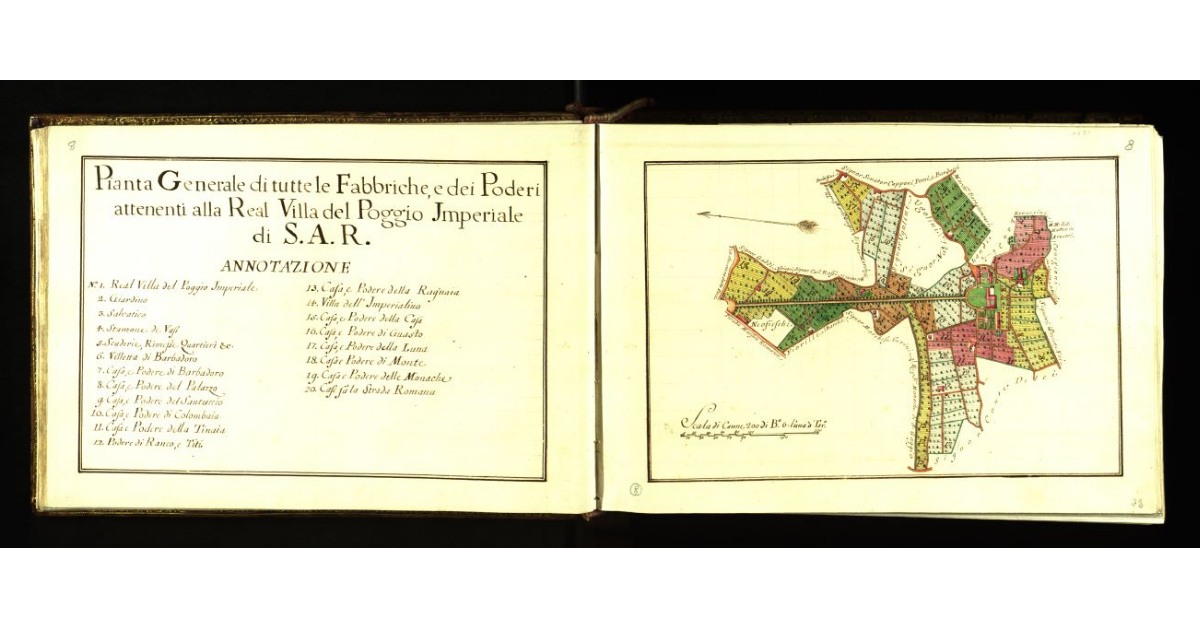 8
Pianta Generale di tutte le Fabbriche, e dei Poderi
attenenti alla Real Villa del Poggio Jmperiale
di S.A.R.
ANNOTAZIONE
N.° 1. Real Villa del Poggio Jmperiale
2. Giardino
3. Salvatico
4. Stanzone de Vasi
5. Scuderie, Rimesse Quartieri &c.
6. Villetta di Barbadoro
7. Casa, e Podere di Barbadoro
8. Casa, e Podere del Palazzo
9. Casa, e Podere del Santuccio
10. Casa, e Podere di Colombaia
11. Casa e Podere della Tinaia
12. Podere di Ranco, e Titi
13. Casa, e Podere della Ragnaia
14. Villa dell' Jmperialino
15. Casa, e Podere della Casa
16. Casa, e Podere di Guasto
17. Casa, e Podere della Luna
18. Casa e Podere di Monte
19. Casa e Podere delle Monache
20. Case sù la Strada Romana
8
Signor Senator Capponi
Ugolini
Signor
Scala di Canne 200 di B.a 6 l'una a
8
38